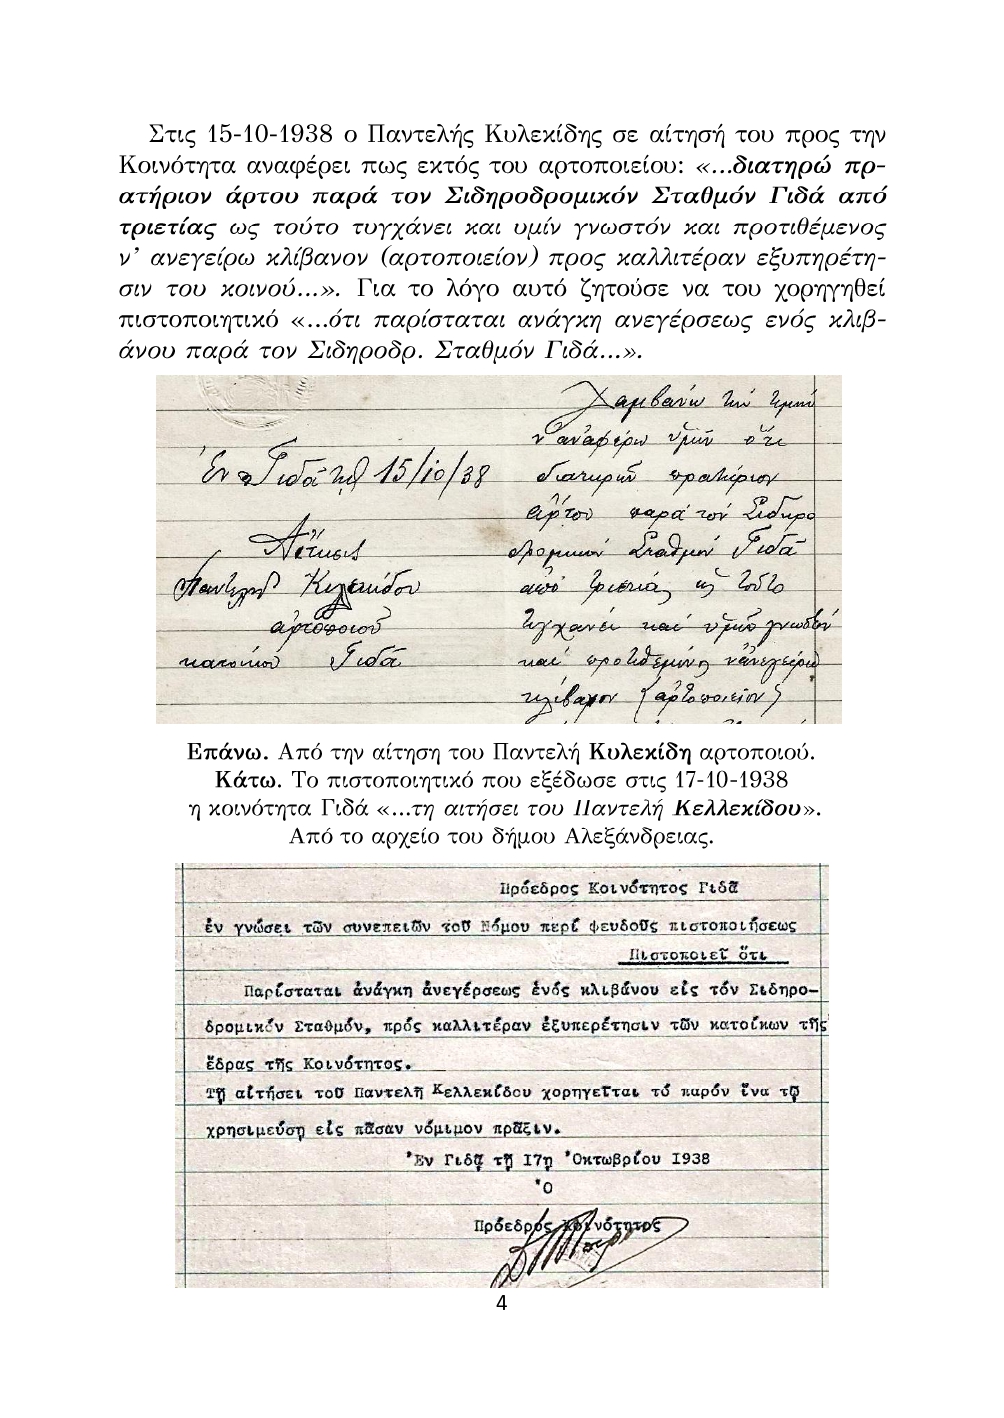 Στις 15-10-1938 ο Παντελής Κυλεκίδης σε αίτησή του προς την
Κοινότητα αναφέρει πως εκτός του αρτοποιείου: «...διατηρώ πρ-
ατήριον άρτου παρά τον Σιδηροδρομικόν Σταθμόν Γιδά από
τριετίας ως τούτο τυγχάνει και υμίν γνωστόν και προτιθέμενος
ν’ ανεγείρω κλίβανον (αρτοποιείον) προς καλλιτέραν εξυπηρέτη-
σιν του κοινού...». Για το λόγο αυτό ζητούσε να του χορηγηθεί
πιστοποιητικό «...ότι παρίσταται ανάγκη ανεγέρσεως ενός κλιβ-
άνου παρά τον Σιδηροδρ. Σταθμόν Γιδά...».
Ἐν Γιδᾶ τῇ 15/10/38
Αἴτησις
Παντελῆ Κυλεκίδου
ἀρτοποιοῦ
κατοίκου Γιδᾶ
Λαμβάνω τήν τιμήν
ν' ἀναφέρω ὑμῖν ὅτι
διατηρῶ πρατήριον
ἄρτου παρά τόν Σιδηρο
δρομικόν Σταθμόν Γιδᾶ
ἀπό τριετίας ὡς τοῦτο
τυγχάνει καί ὑμῖν γνωστόν
καί προτιθέμενος ν' ἀνεγείρω
κλίβανον (ἀρτοποιεῖον)
Επάνω. Από την αίτηση του Παντελή Κυλεκίδη αρτοποιού.
Κάτω. Το πιστοποιητικό που εξέδωσε στις 17-10-1938
η κοινότητα Γιδά «...τη αιτήσει του Παντελή Κελλεκίδου».
Από το αρχείο του δήμου Αλεξάνδρειας.
Πρόεδρος Κοινότητος Γιδᾶ
ἐν γνώσει τῶν συνεπειῶν τοῦ Νόμου περί ψευδοῦς πιστοποιήσεως
Πιστοποιεῖ ὅτι
Παρίσταται ἀνάγκη ἀνεγέρσεως ἑνός κλιβάνου εἰς τόν Σιδηρο-
δρομικόν Σταθμόν, πρός καλλιτέραν ἐξυπερέτησιν τῶν κατοίκων τῆς
ἕδρας τῆς Κοινότητος.
Τῇ αἰτήσει τοῦ Παντελῆ Κελλεκίδου χορηγεῖται τό παρόν ἵνα τῷ
χρησιμεύσῃ εἰς πᾶσαν νόμιμον πρᾶξιν.
Ἐν Γιδᾷ τῇ 17ῃ Ὀκτωβρίου 1938
Ὁ
Πρόεδρος Κοινότητος
4